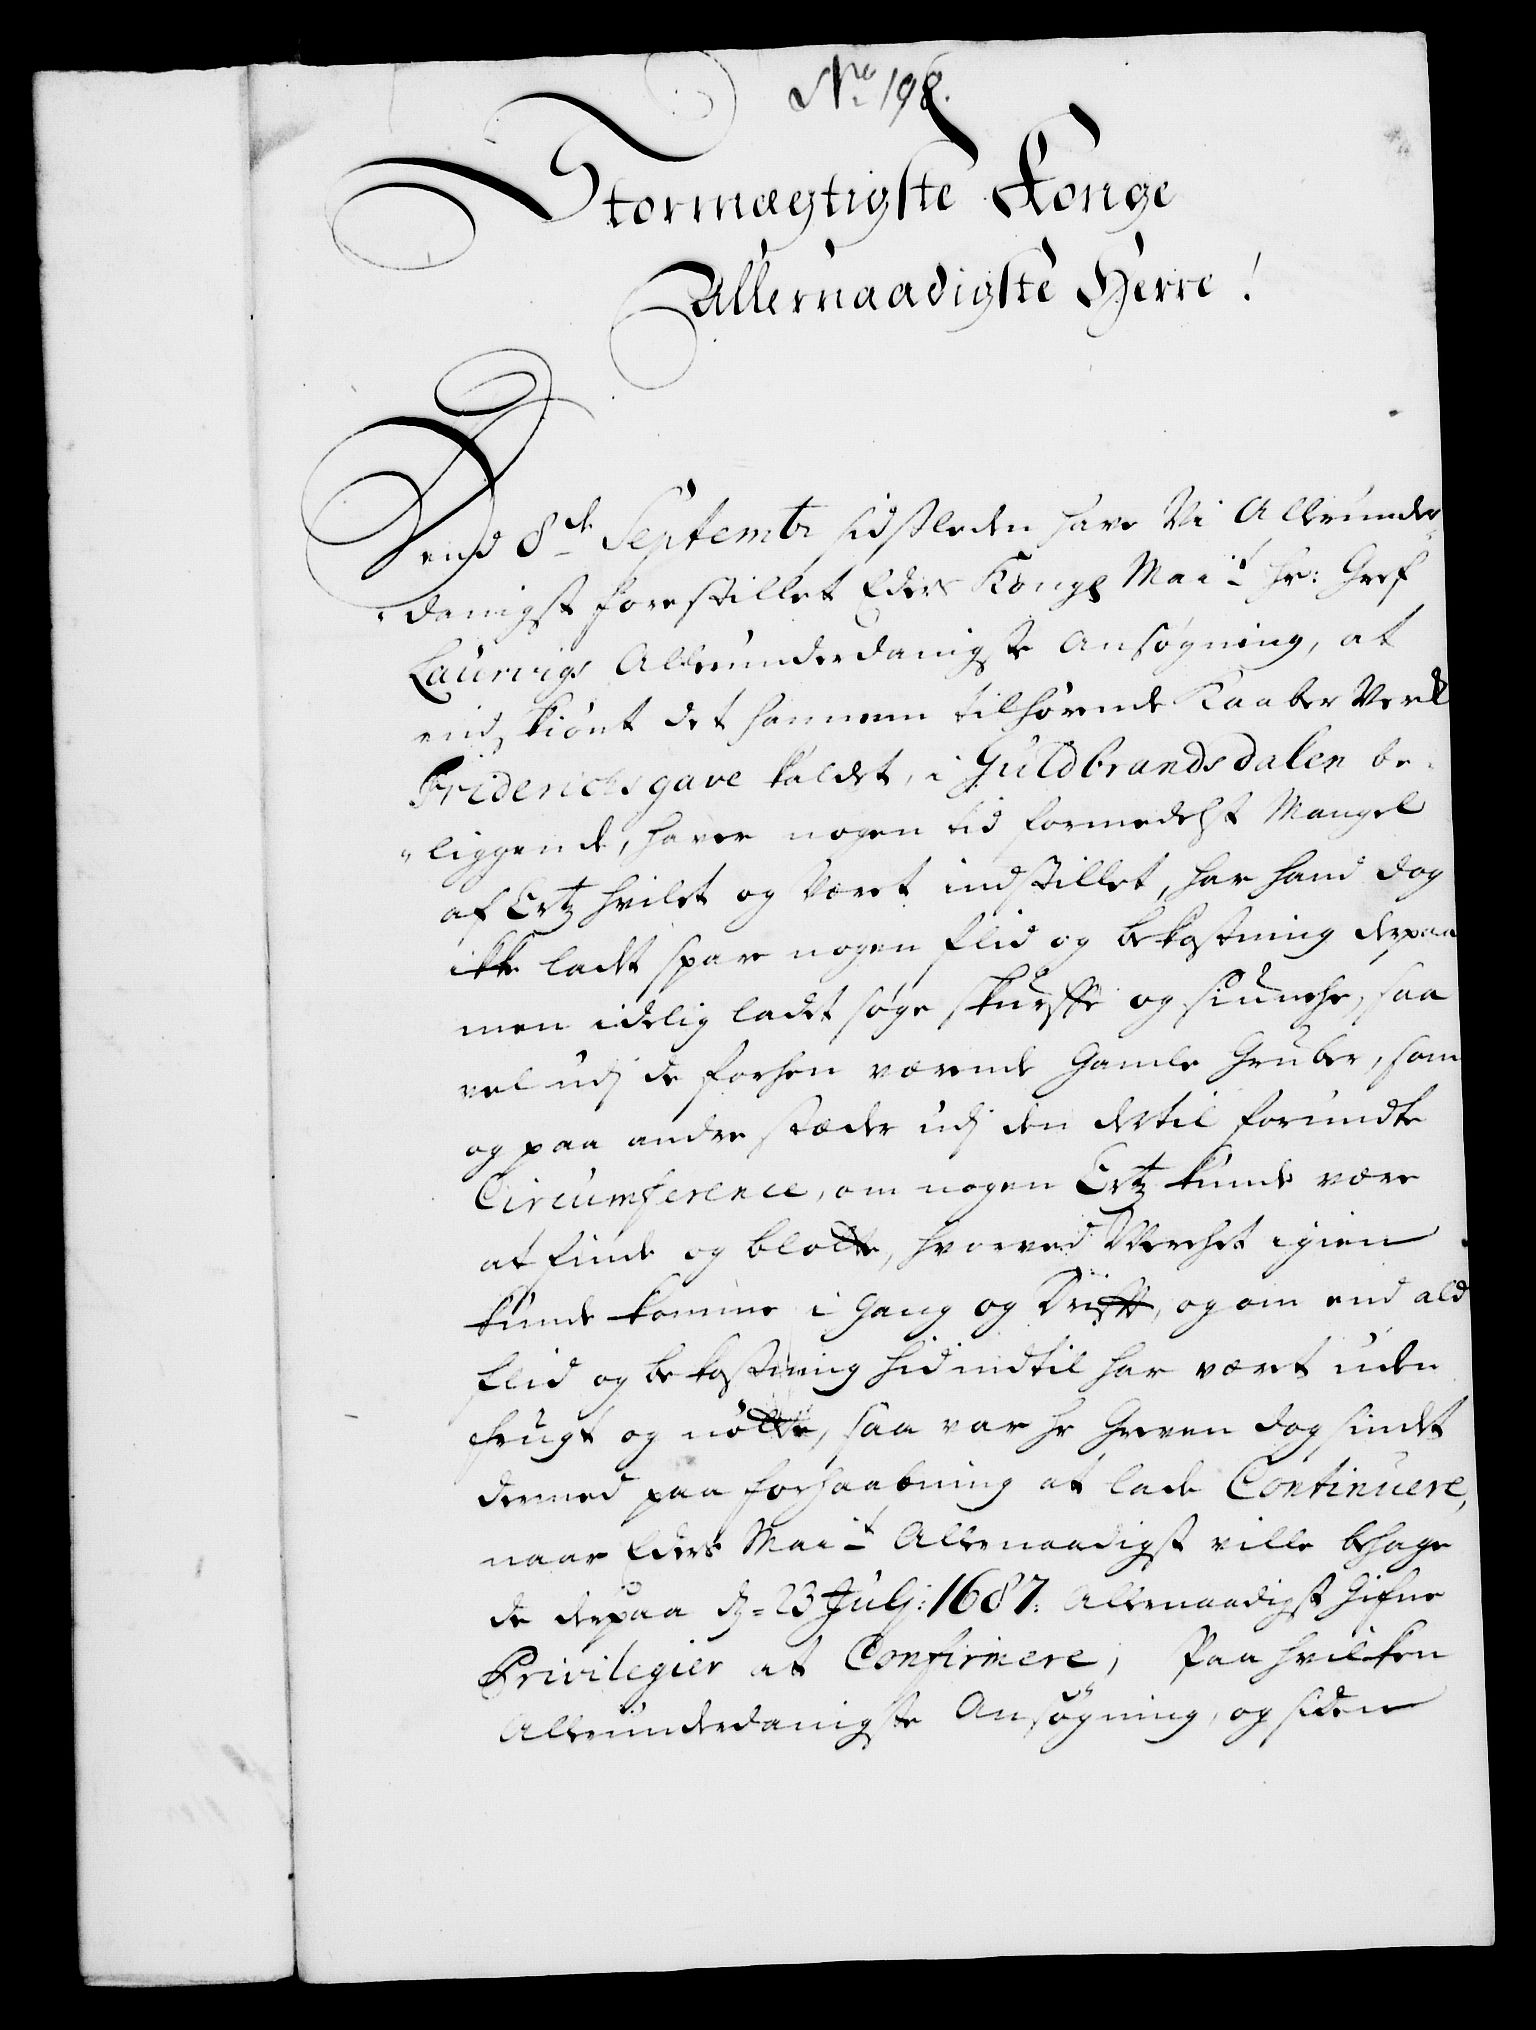 No 198.
Stormægtigste Konge
Allernaadigste Herre!
Dend 8de Septembr sidstleden have Vi Allerunder
danigst forestillet Eders Kongl Mait hr: Gref
Laurvigs Allerunderdanigste Ansøgning, at
endskiønt det hannem tilhørende Kaaber Verk
Friderichsgave kaldet, i Guldbrandsdalen be-
liggende, haver nogen tid formedelst Mangel
af Ertz hvilet og været indstillet, har hand dog
ikke ladet spare nogen flid og bekostning derpaa
men idelig ladet søge skurffe og siunche, saa
vel udj de forhen værende Gamle Gruber, som
og paa andre stæder udj den dertil forundte
Circumference, om nogen Ertz kunde være
at finde og blotte, hvorved Verchet igien
kunde komme i gang og Drifft, og om end ald
flid og bekostning hidindtil har været uden
frugt og nøtte, saa var hr Greven dog sindet
dermed paa forhaabning at lade Continuere,
naar Eders Mait Allernaadigst ville behage
de derpaa d: 23 Julj: 1687. Allernaadigst Gifne
Privilegier at Confirmere, Paa hvilken
Allerunderdanigste Ansøgning, og siden